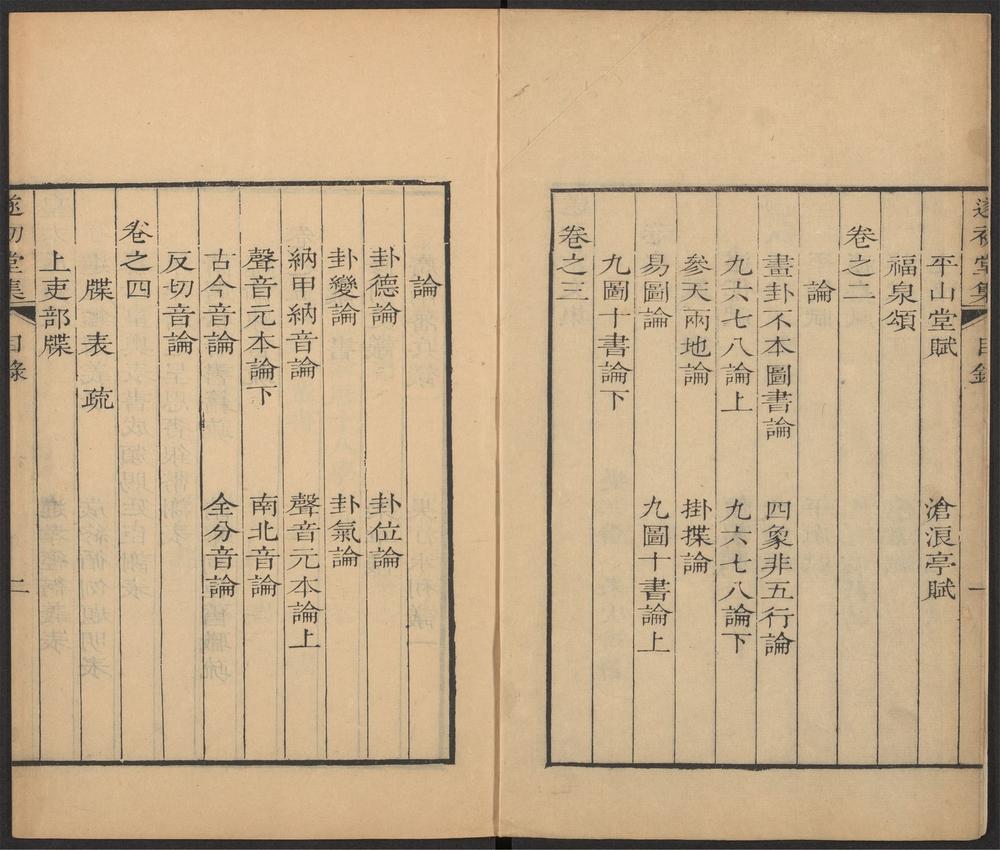 遂初堂集 目錄 一
平山堂賦 滄浪亭賦
福泉頌
卷之二
論
畫卦不本圖書論 四象非五行論
九六七八論上 九六七八論下
參天兩地論 掛揲論
易圖論 九圖十書論上
九圖十書論下
卷之三
論
卦德論 卦位論
卦變論 卦氣論
納甲納音論 聲音元本論上
聲音元本論下 南北音論
古今音論 全分音論
反切音論
卷之四
牒 表 疏
上吏部牒
遂初堂集 目錄 二